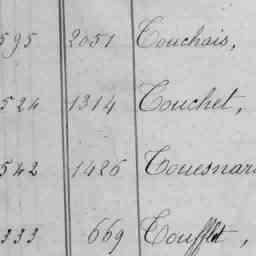 595 2051 Touchais,
524 1314 Touchet,
542 1426 Touesnar
333 669 Toufflet,